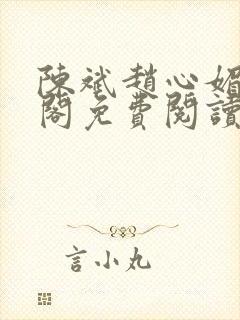 陳斌趙心媚
閣免費閱讀
言小丸